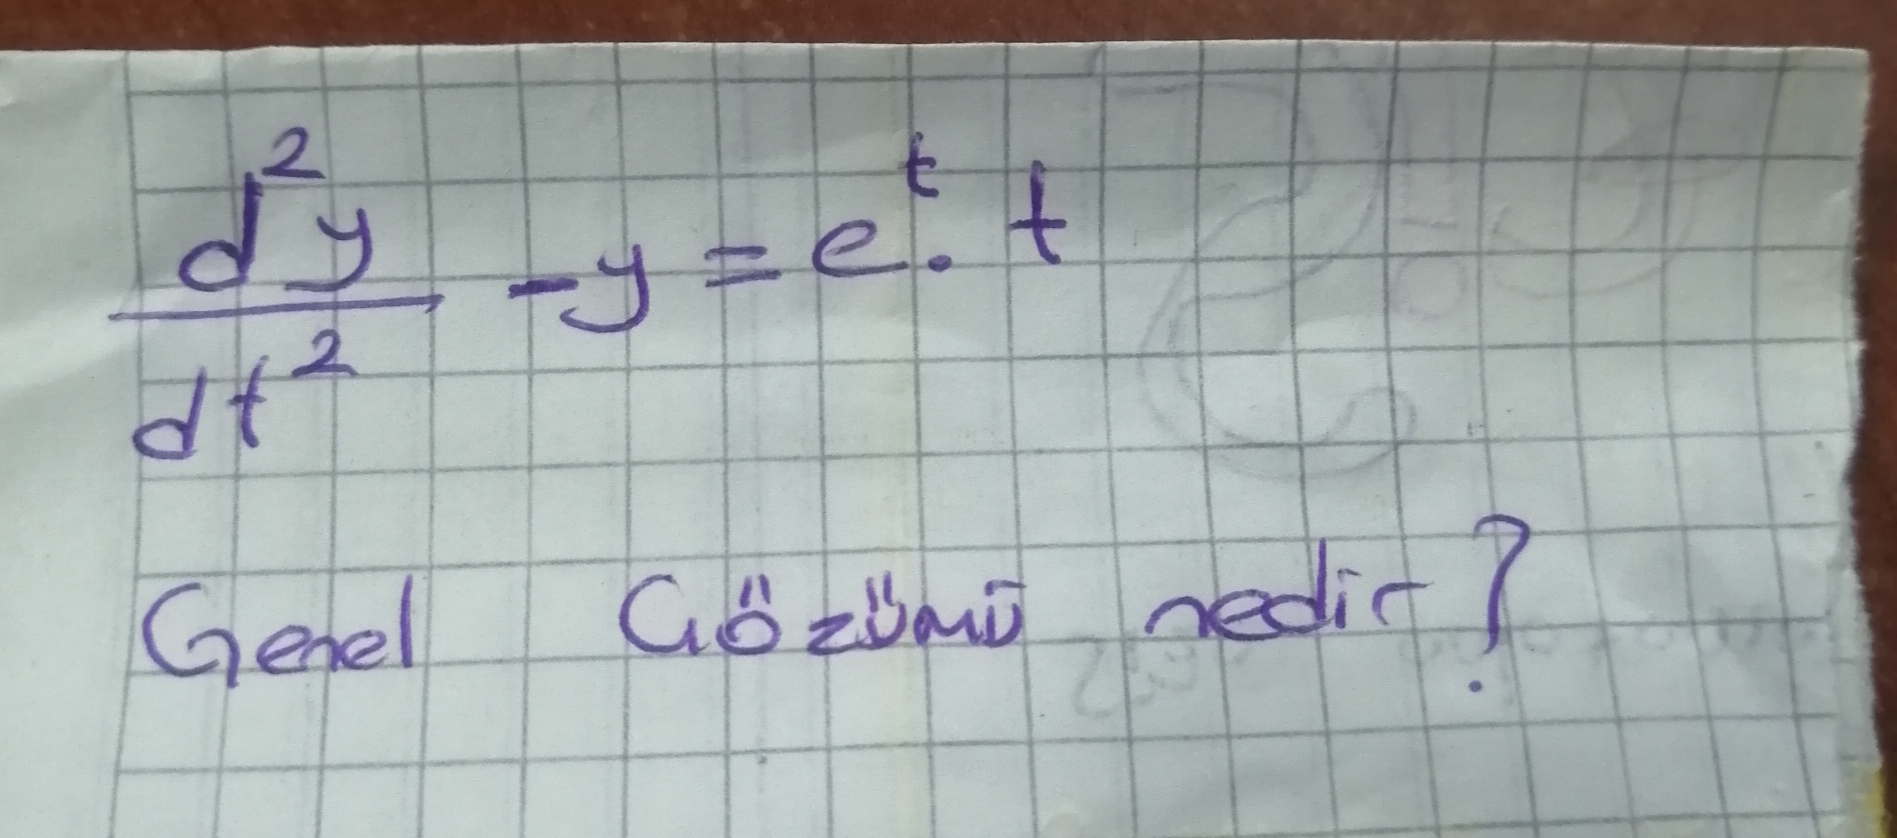 d²y/dt² - y = e^t . t
Genel Çözümü nedir?